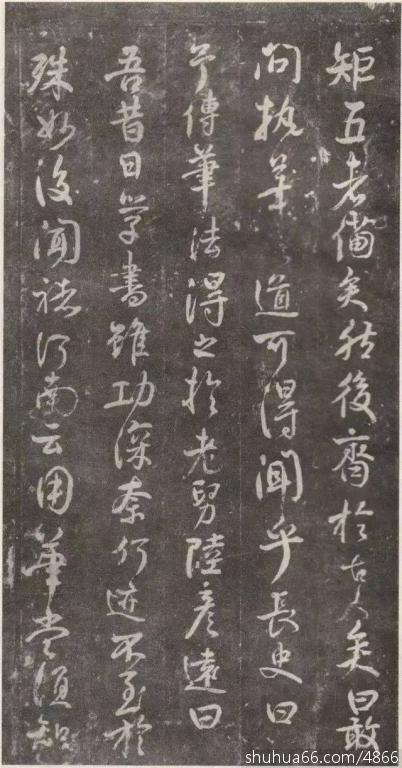 矩五者備矣然後齊於古人矣曰敢
問執筆之道可得聞乎長史曰
予傳筆法得之於老舅陸彥遠曰
吾昔日學書雖功深奈何迹不至於
殊妙後聞褚河南云用筆當須知
shuhua66.com/4866